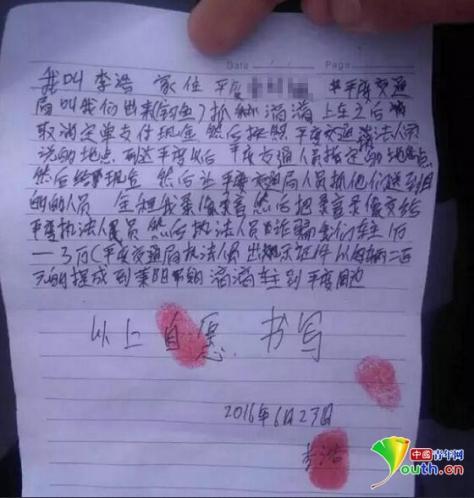 Date
Page
我叫李浩 家住 平度 平度交通
局叫我们出来(钓鱼)抓 滴滴 上车之后
取消定单支付现金 然后按照平度交通 法人员
说的地点 到达平度以后 平度交通人员指定的地点
然后给现金 然后让平度交通局人员抓他们送到
的人员 全程我录像录音 然后把录音录像交给
平度执法人员 然后执法人员 诈骗 车主 1万
—3万(平度交通局执法人员 出示证件 以每辆二百
元的提成 到莱阳 滴滴车主到平度周边
以上自愿 书写
2016年6月23日
李浩
中國青年网
youth.cn